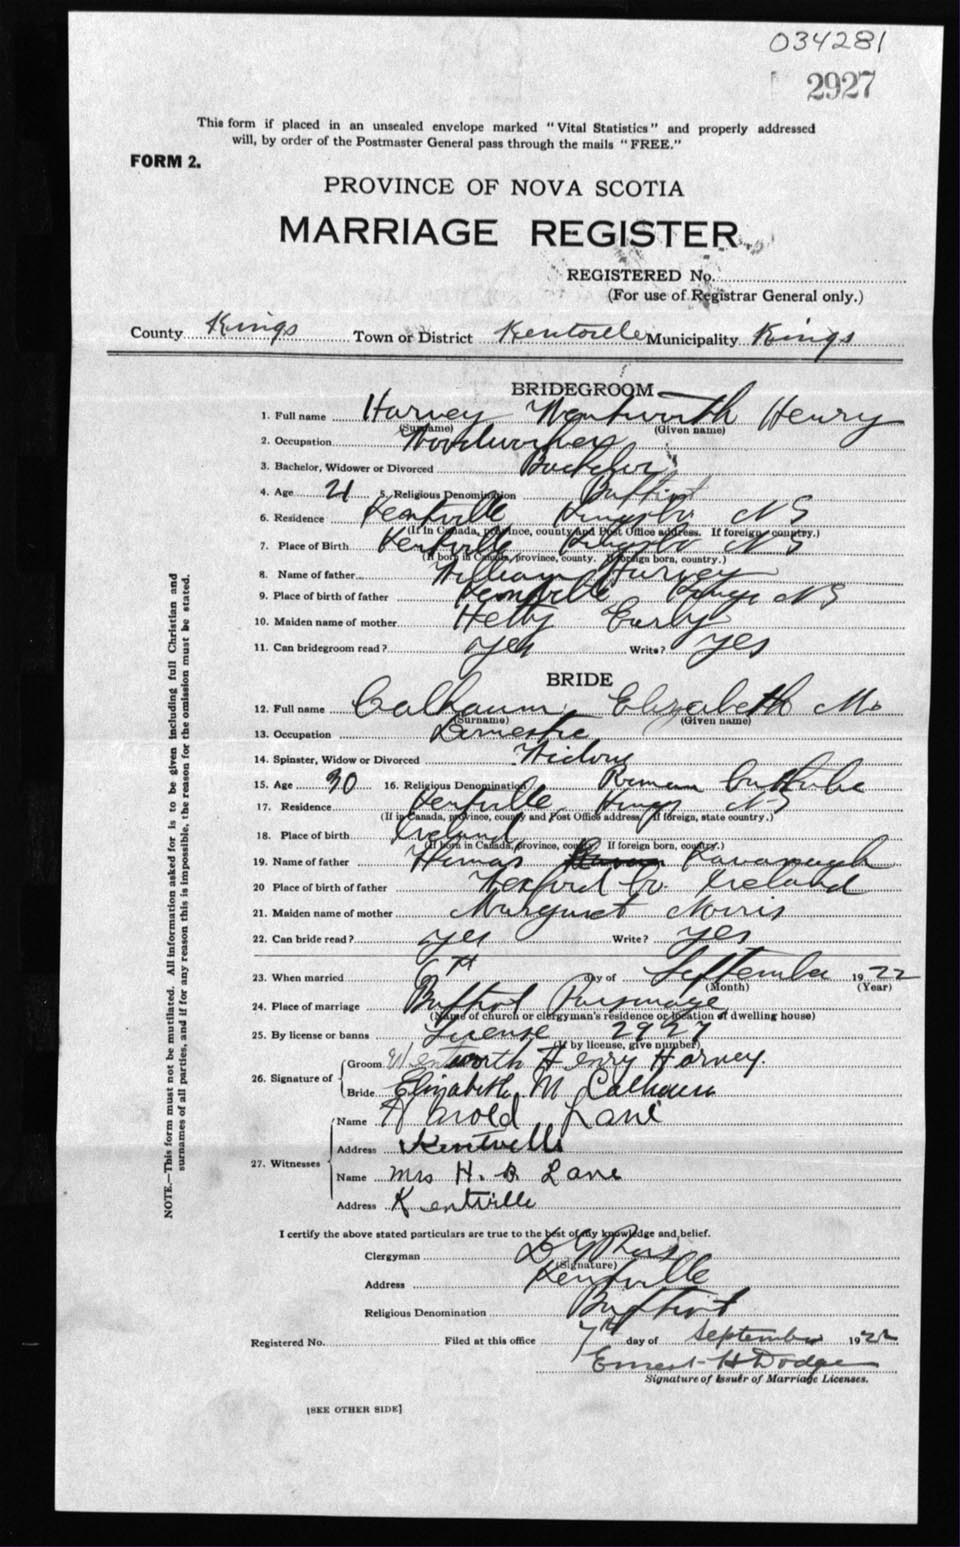 034281
2927
This form if placed in an unsealed envelope marked "Vital Statistics" and properly addressed
will, by order of the Postmaster General pass through the mails "FREE."
FORM 2.
PROVINCE OF NOVA SCOTIA
MARRIAGE REGISTER
REGISTERED No.
(For use of Registrar General only.)
County Kings Town or District Kentville Municipality Kings
BRIDEGROOM
1. Full name Harvey Wentworth Henry
(Surname) (Given name)
2. Occupation Woodworker
3. Bachelor, Widower or Divorced Bachelor
4. Age 21 5. Religious Denomination Baptist
6. Residence Kentville Kings Co. N S
(If in Canada, province, county and Post Office address. If foreign country.)
7. Place of Birth Kentville Kings Co N S
(If born in Canada, province, county. If foreign born, country.)
8. Name of father William Harvey
9. Place of birth of father Kentville Kings N S
10. Maiden name of mother Hetty
11. Can bridegroom read? yes Write? yes
BRIDE
12. Full name Calhoun Elizabeth M
(Surname) (Given name)
13. Occupation Domestic
14. Spinster, Widow or Divorced Widow
15. Age 30 16. Religious Denomination Roman Catholic
17. Residence Kentville Kings N S
(If in Canada, province, county and Post Office address. If foreign, state country.)
18. Place of birth Ireland
(If born in Canada, province, county. If foreign born, country.)
19. Name of father Kavanaugh
20 Place of birth of father Wexford Co. Ireland
21. Maiden name of mother Margaret Norris
22. Can bride read? yes Write? yes
23. When married 6th day of September 1922
(Month) (Year)
24. Place of marriage Baptist Parsonage
(Name of church or clergyman's residence or location of dwelling house)
25. By license or banns License 2927
(If by license, give number)
26. Signature of
Groom Wentworth Henry Harvey.
Bride Elizabeth M Calhoun
27. Witnesses
Name Harold Lane
Address Kentville
Name Mrs H. B. Lane
Address Kentville
I certify the above stated particulars are true to the best of my knowledge and belief.
Clergyman
(Signature)
Address Kentville
Religious Denomination Baptist
Registered No. Filed at this office 7th day of September 1922
Ernest H Dodge
Signature of Issuer of Marriage Licenses.
[SEE OTHER SIDE]
NOTE.—This form must not be mutilated. All information asked for is to be given including full Christian and
surnames of all parties, and if for any reason this is impossible, the reason for the omission must be stated.